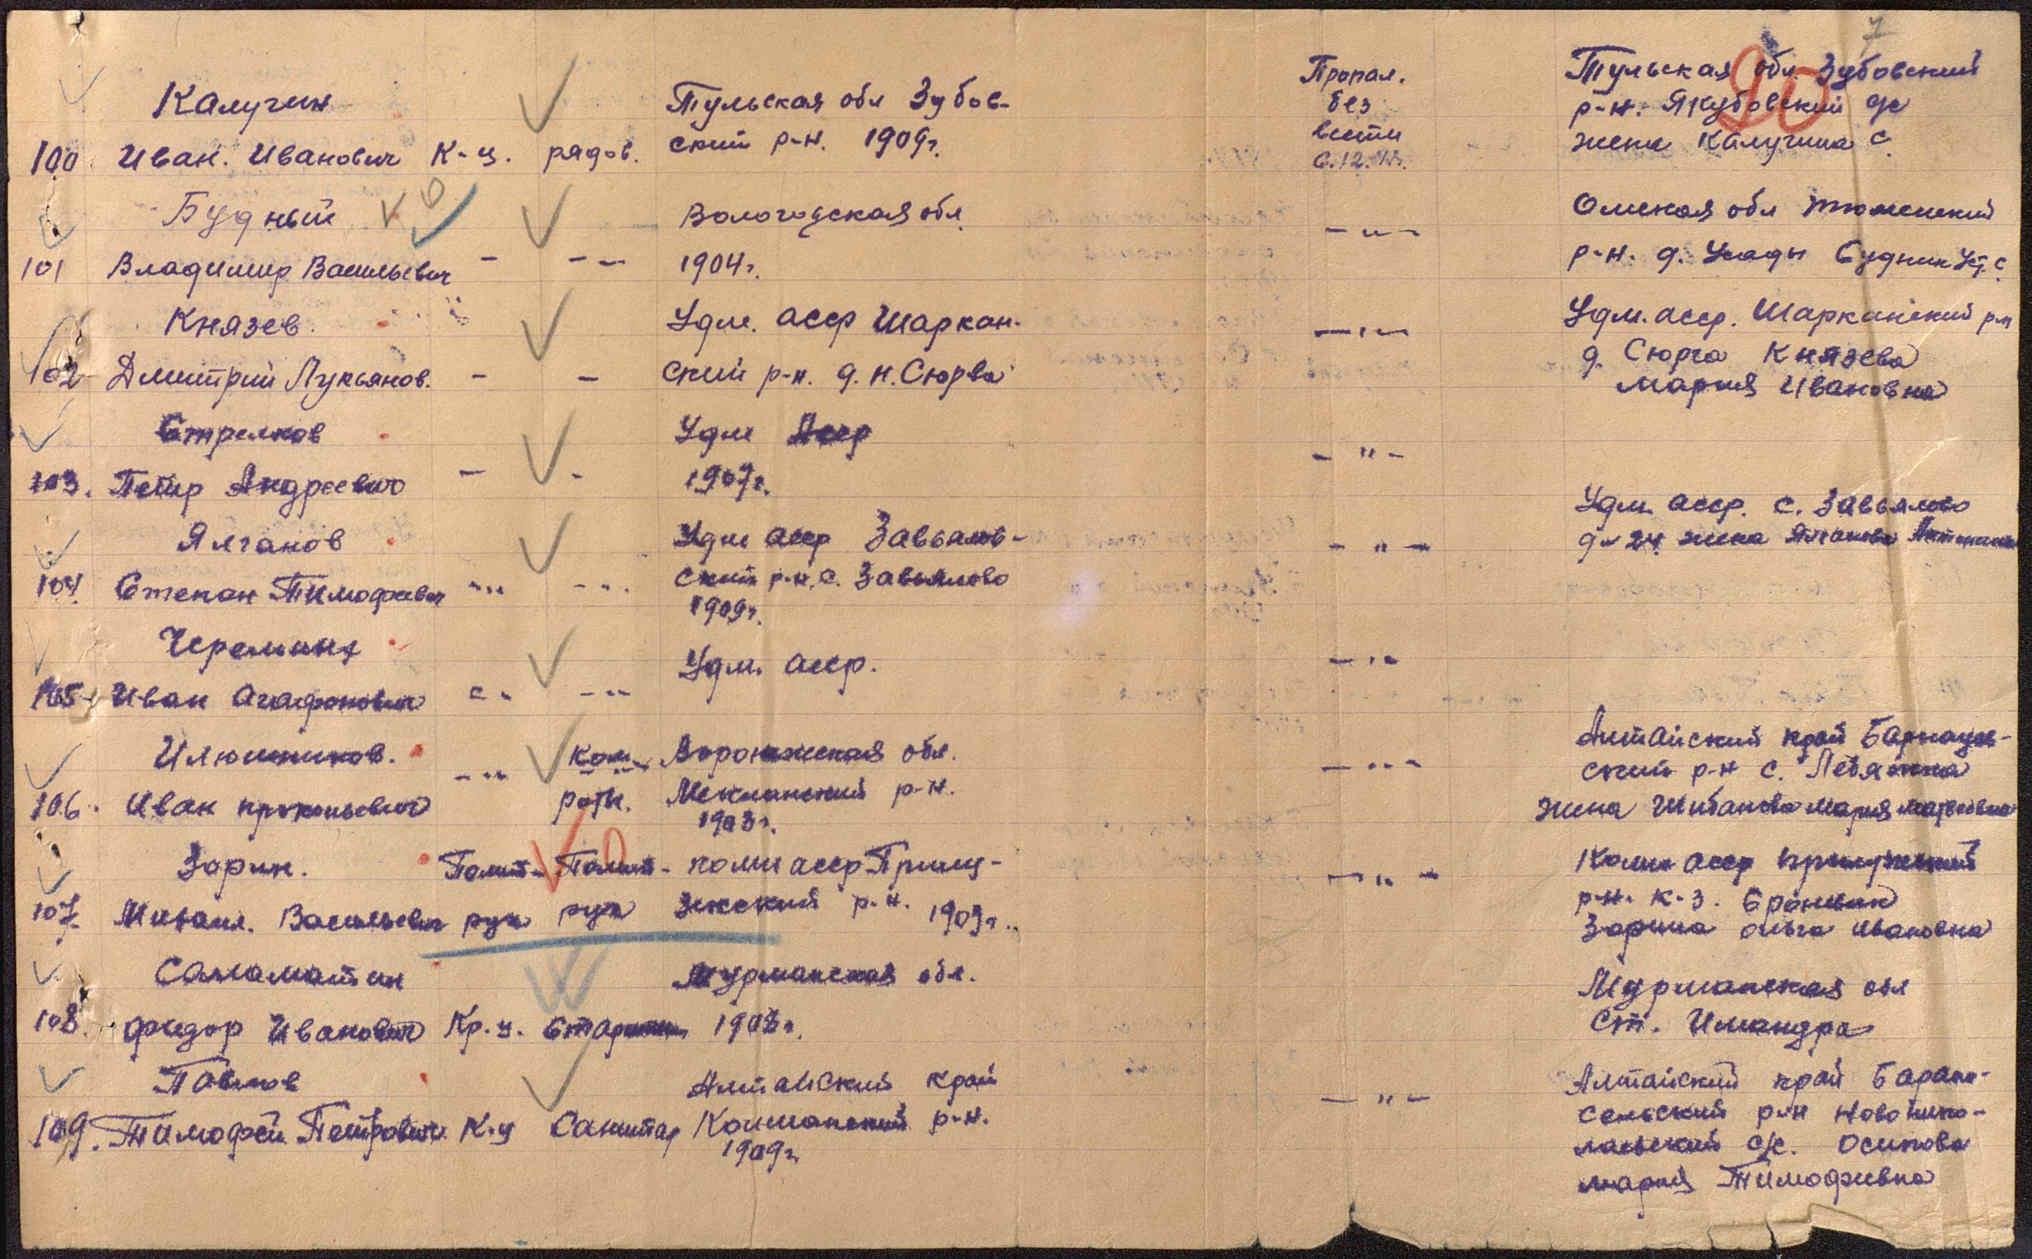 7
20
Калугин
100. Иван. Иванович К-ц. рядов.
Тульская обл Зубов-
ский р-н. 1909г.
Пропал.
без
вести
6.12.
Тульская обл Зубовский
р-н. Якубовский
жена Калугина С.
Будный
101 Владимир Васильевич - - -
Вологодская обл
1904г.
- " -
Омская обл тюменский
р-н. д. Усады Будник
Князев
102 Дмитрий Лукьянов. - -
Удм. асср Шаркан-
ский р-н. д. Н. Сюрва
- " -
Удм. асср. Шарканский р-н
д. Сюрга Князева
мария Ивановна
Стрелков
103. Петр Андреевич - -
Удм Асср
1907г.
- " -
Ялганов
104. Степан Тимофеевич - " - "
Удм асср Завьялов-
ский р-н. с. Завьялово
1909г.
- " -
Удм. асср. с. Завьялово
д- 24 жена Ялганова
Черемных
105 Иван Агафонович - " - "
Удм. асср.
- " -
Илюшников.
106. Иван прокопьевич - " Ком. роты.
Воронежская обл.
р-н.
1903г.
- " -
Алтайский край Барнауль-
ский р-н с. Лебяжка
жена Шибанова Мария Матвеевна
Зорин.
107 Михаил. Васильевич Полит-рук Полит-рук
коми асср Прилу-
зский р-н. 1903г.
- " -
Коми асср прилузский
р-н. к-з.
Зорина ольга Ивановна
Саламатин
108. Федор Иванович Кр. ц.
Мурманская обл.
Мурманская обл
ст. Имандра
Павлов
109. Тимофей Петрович К-ц Санитар
Алтайский край
р-н.
1909г.
- " -
Алтайский край
сельский р-н Новонико-
лаевский с/с. Осипова
мария Тимофевна